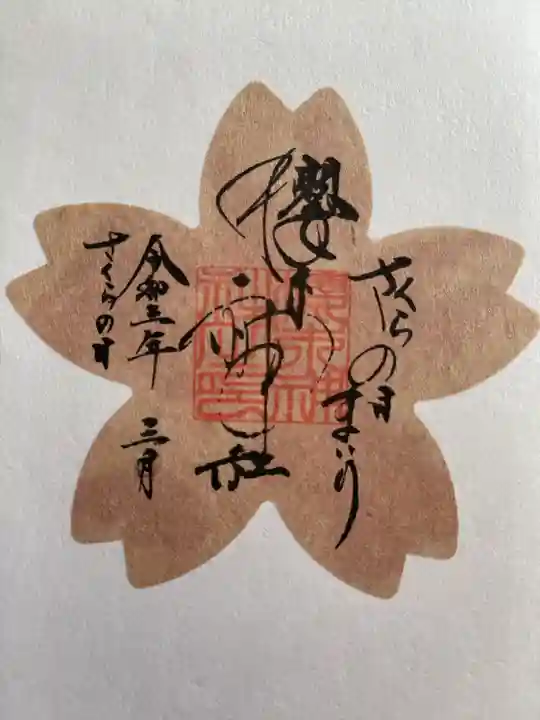 さくらの日まいり
櫻木神社
令和三年 三月
さくらの日